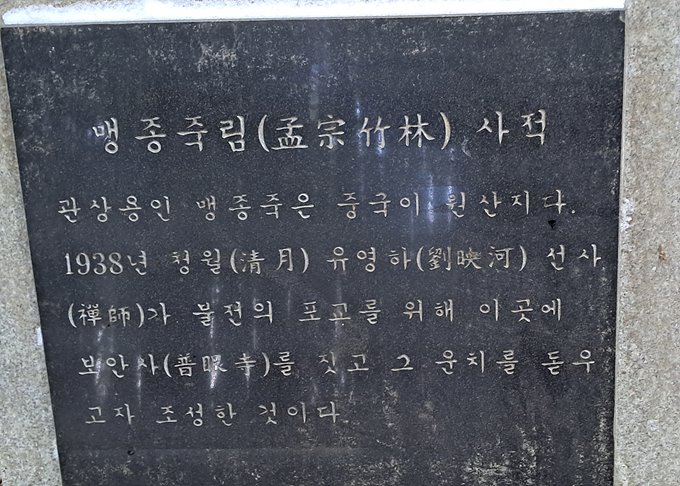 맹종죽림(孟宗竹林) 사적
관상용인 맹종죽은 중국이 원산지다.
1938년 청월(清月) 유영하(劉映河) 선사
(禪師)가 불전의 포교를 위해 이곳에
보안사(普眼寺)를 짓고 그 운치를 돋우
고자 조성한 것이다.